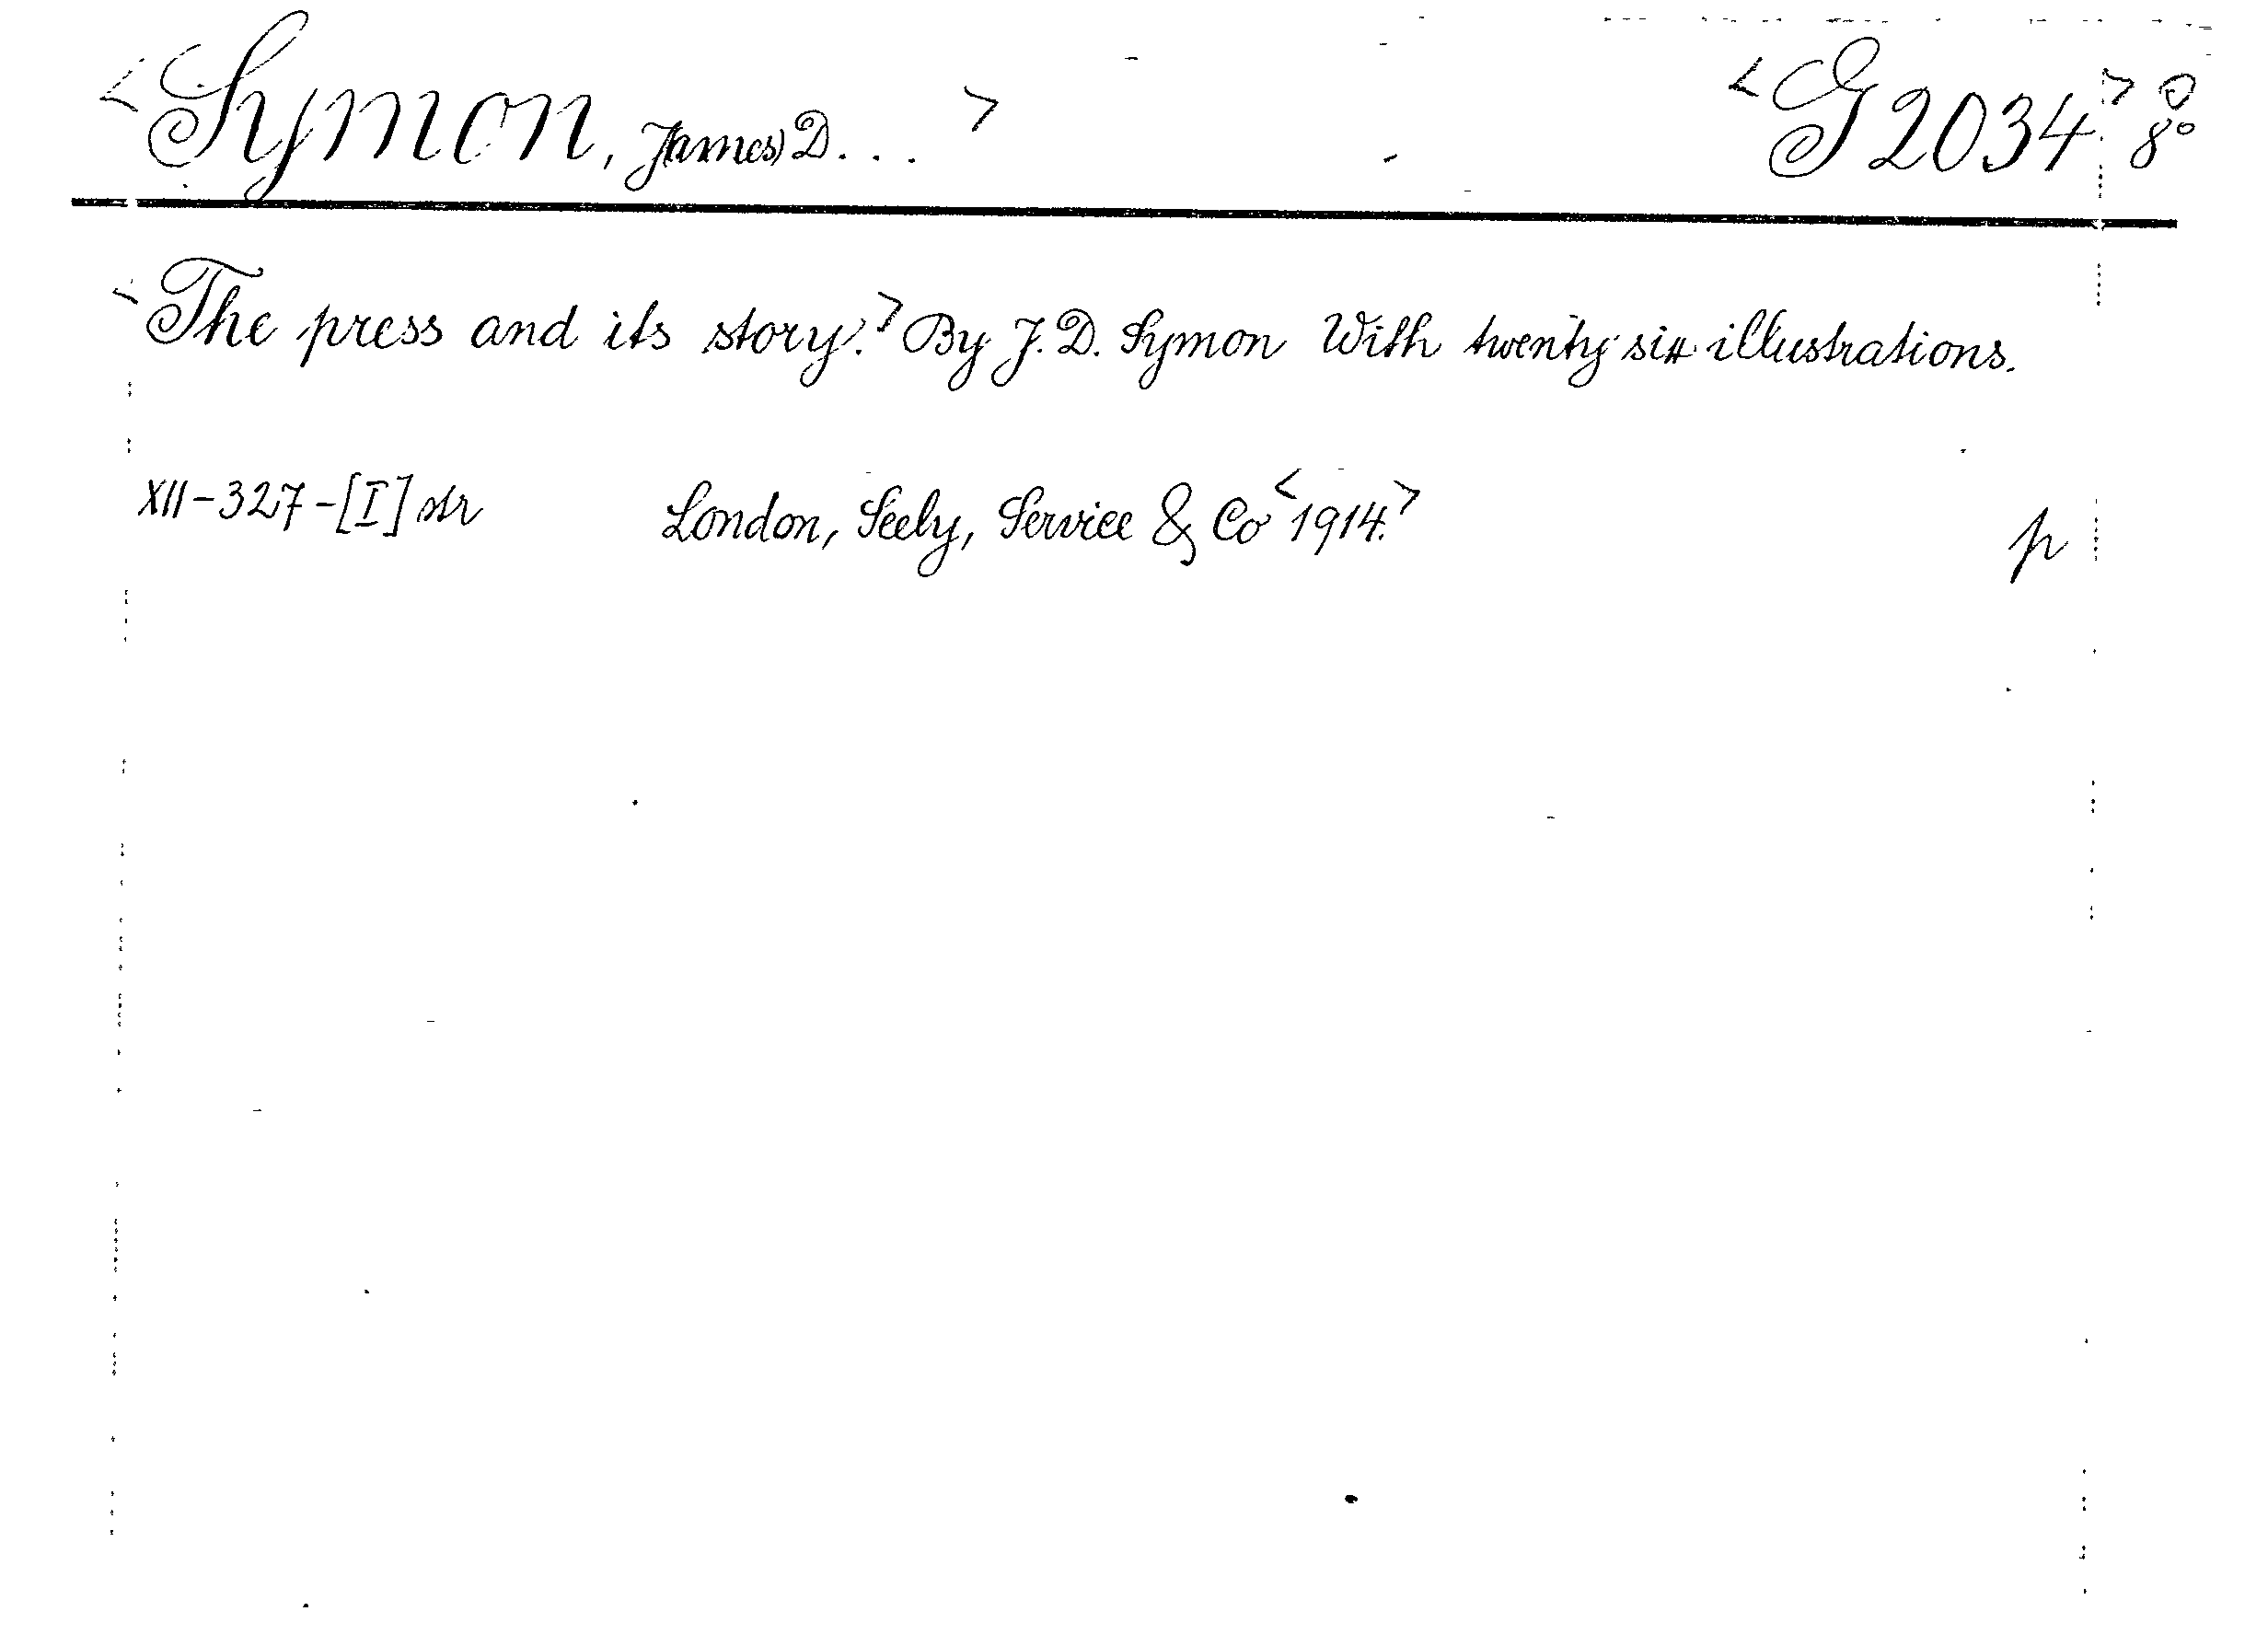 <Symon, J(ames) D. . . > <G 2034> 8°
<The press and its story.> By J. D. Symon With twenty six illustrations.
XII-327-[I] str London, Seely, Service & Co <1914.> p